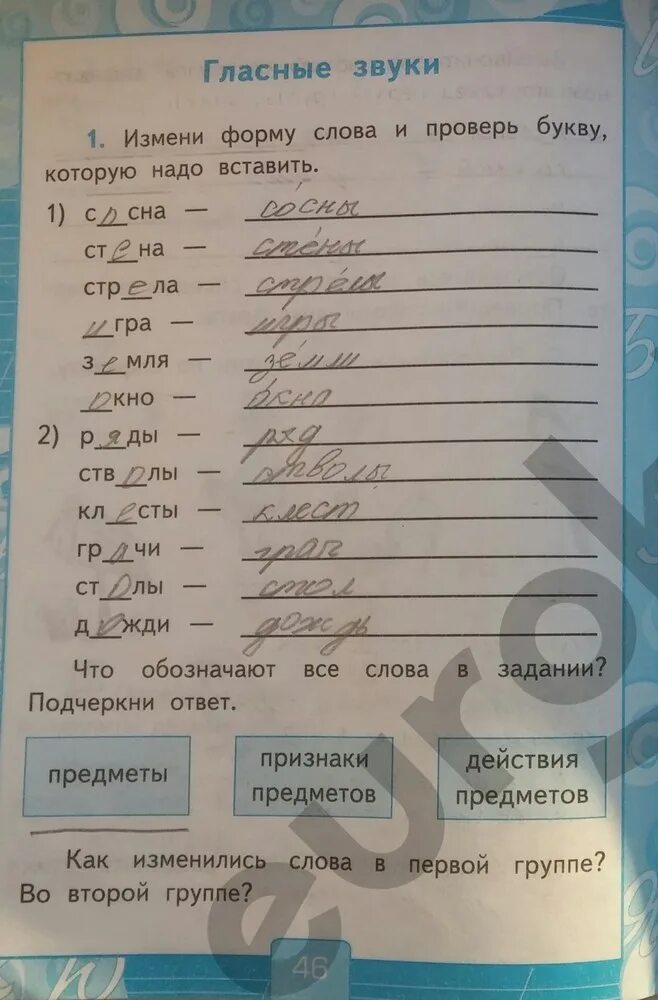 Гласные звуки
1. Измени форму слова и проверь букву,
которую надо вставить.
1) сосна — со́сны
стена — сте́ны
стрела — стре́лы
игра — и́гры
земля — зе́мли
окно — о́кна
2) ряды — ряд
стволы — стволы
клесты — клест
грачи — грач
столы — стол
дожди — дождь
Что обозначают все слова в задании?
Подчеркни ответ.
предметы
признаки предметов
действия предметов
Как изменились слова в первой группе?
Во второй группе?
46
eurok